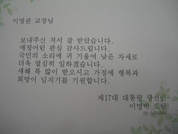 이명관 교장님
보내주신 저서 잘 받았습니다.
애정어린 관심 감사드립니다.
국민의 소리에 귀 기울여 낮은 자세로
더욱 열심히 일하겠습니다.
새해 복 많이 받으시고 가정에 행복과
희망이 넘치기를 기원합니다.
제17대 대통령 당선인
이명박